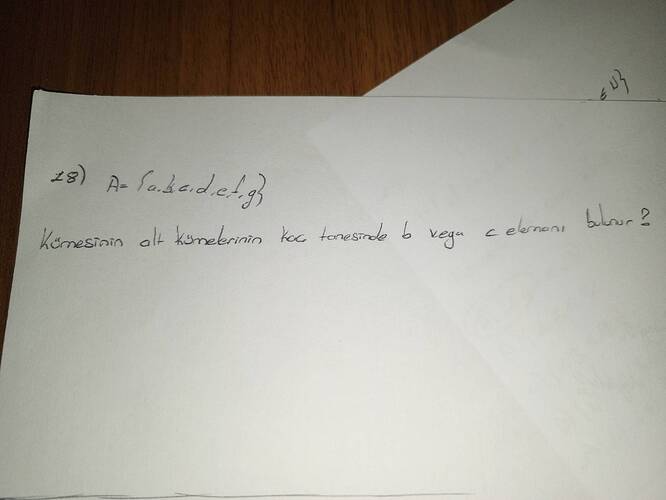 εU}
18) A= {a,b,c,d,e,f,g}
Kümesinin alt kümelerinin kaç tanesinde b veya c elemanı bulunur?